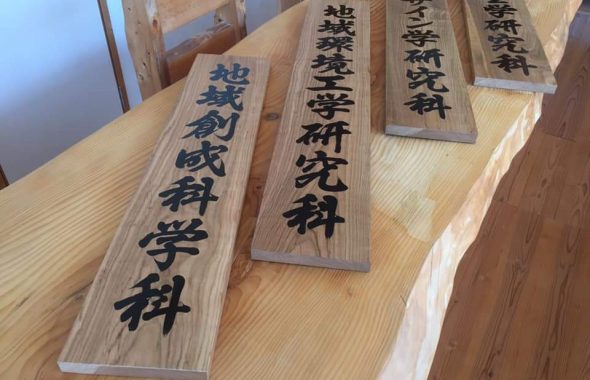 地域創成科学科
地域環境工学研究科
イン学研究科
学研究科